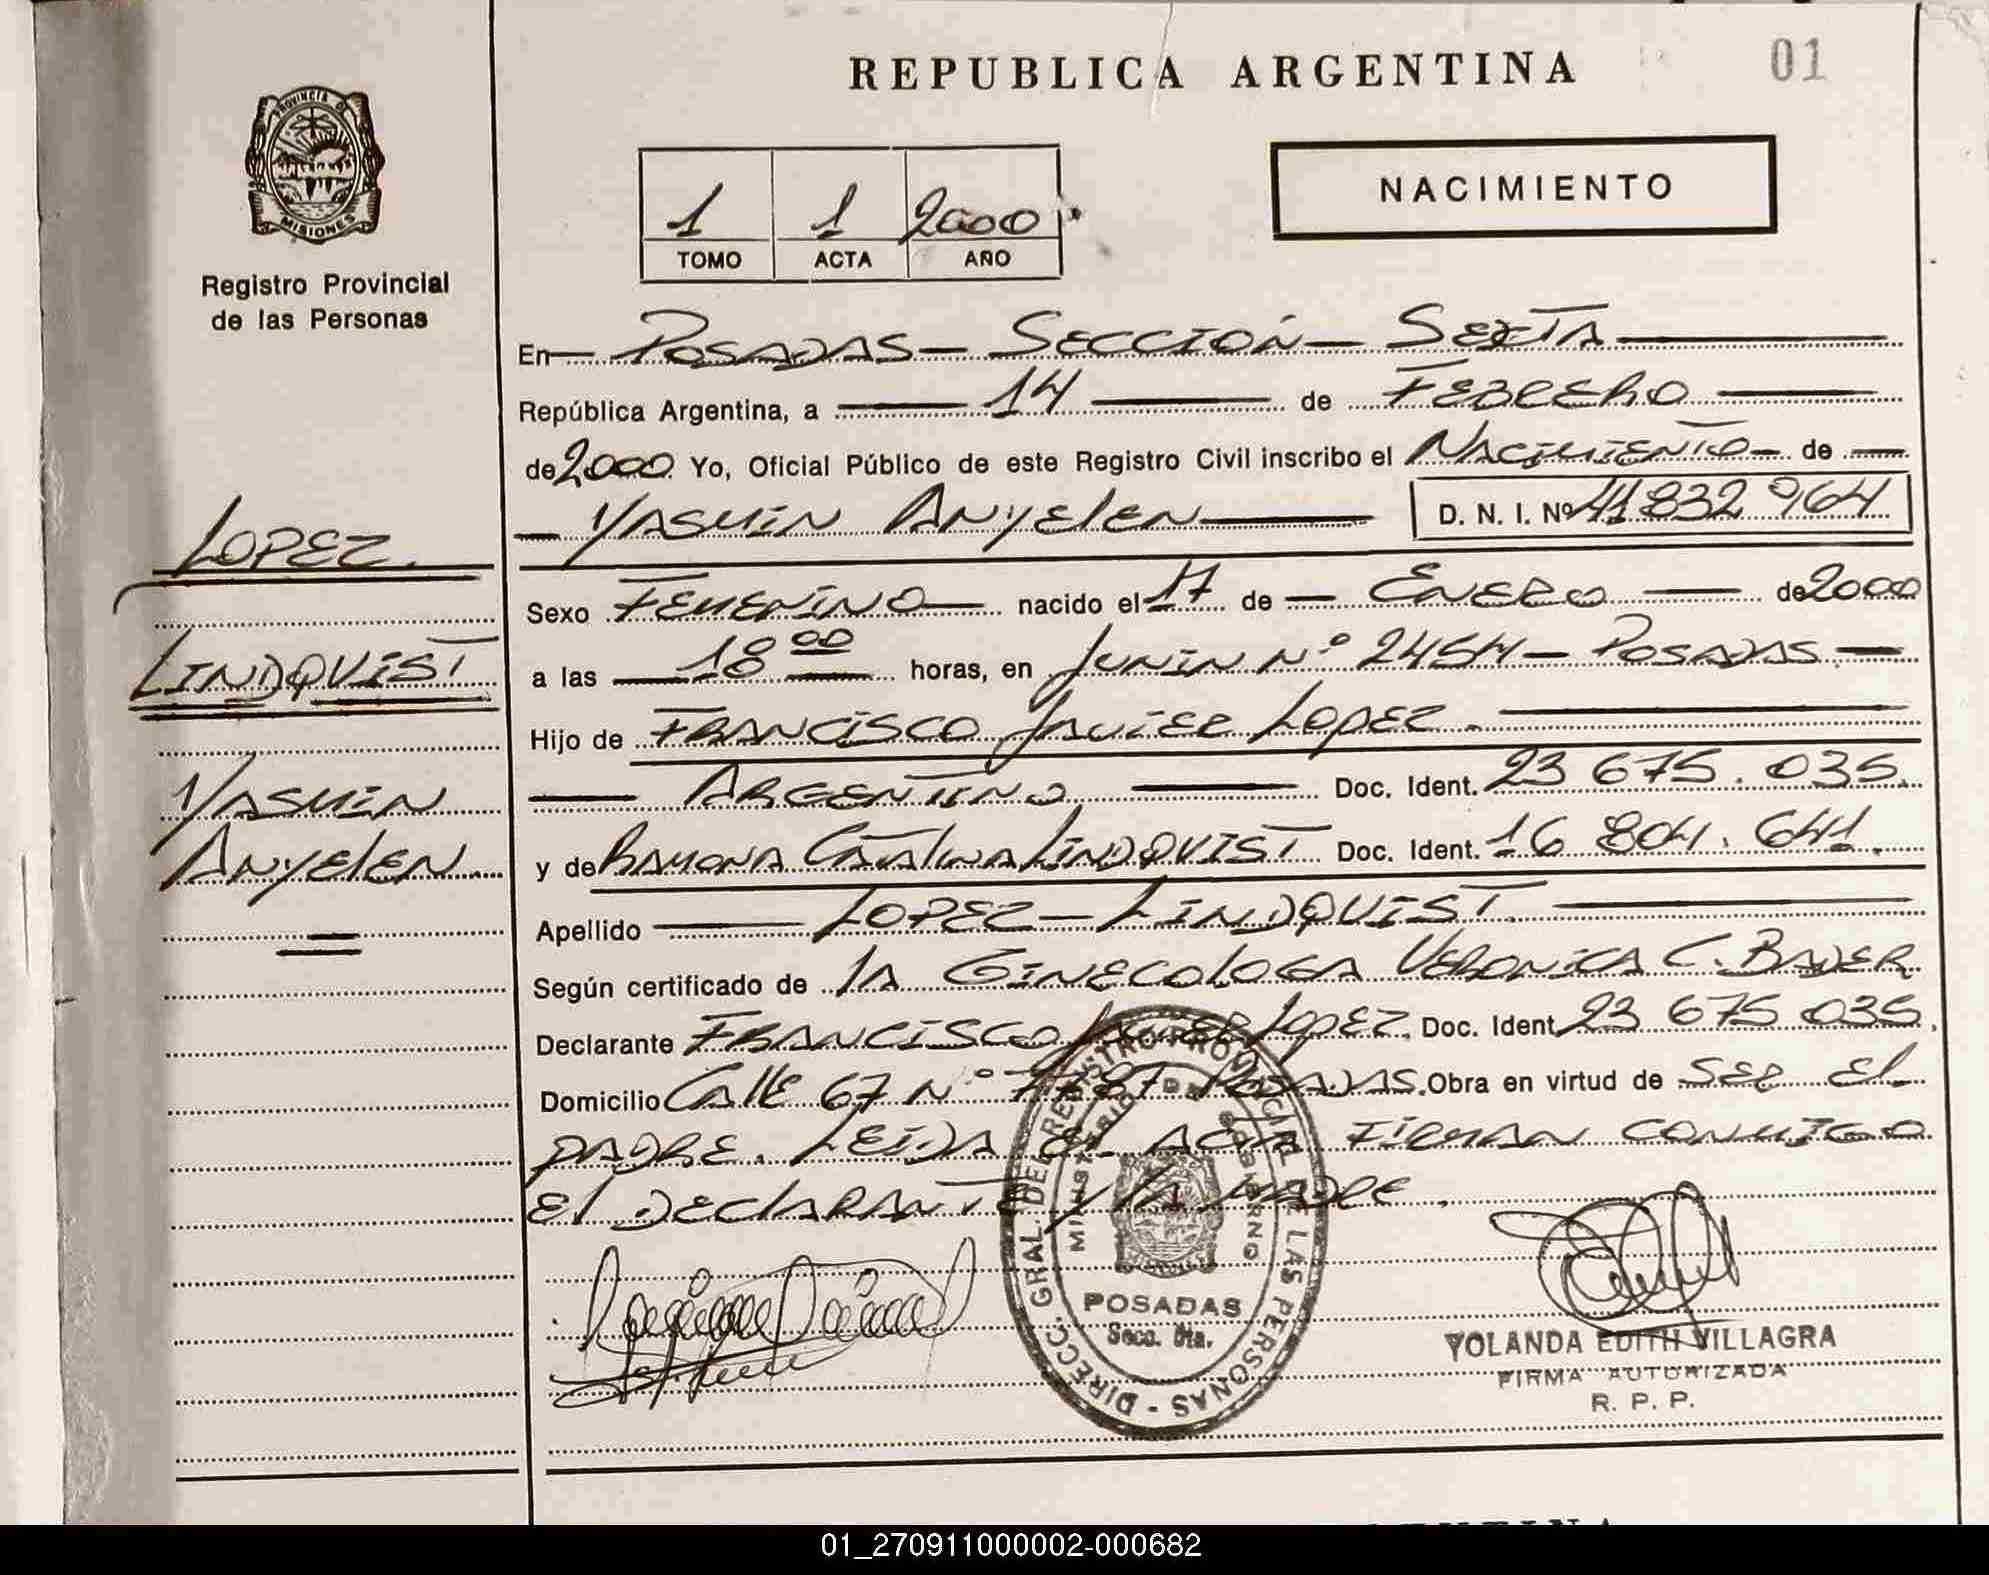 REPUBLICA ARGENTINA
01
PROVINCIA DE
MISIONES
Registro Provincial
de las Personas
1 1 2000
TOMO ACTA AÑO
NACIMIENTO
En POSADAS - SECCION - SEXTA
República Argentina, a 14 de FEBRERO
de 2000 Yo, Oficial Público de este Registro Civil inscribo el NACIMIENTO de
YASMIN ANYELEN D. N. I. Nº 41 832 964
Sexo FEMENINO nacido el 17 de ENERO de 2000
a las 18 00 horas, en JUNIN Nº 2454 - POSADAS.
Hijo de FRANCISCO JAVIER LOPEZ.
ARGENTINO Doc. Ident. 23 675.035.
y de RAMONA CATALINA LINDQVIST Doc. Ident. 16 804.641.
Apellido LOPEZ - LINDQUIST.
Según certificado de LA GINECOLOGA VERONICA C. BADER
Declarante FRANCISCO JAVIER LOPEZ. Doc. Ident. 23 675 035.
Domicilio CALLE 67 Nº POSADAS. Obra en virtud de SER EL
PADRE. LEIDA EL ACTA FIRMAN CONMIGO
EL DECLARANTE Y LA MADRE.
LOPEZ.
LINDQVIST
YASMIN
ANYELEN
DIRECC. GRAL. DEL REGISTRO PROVINCIAL DE LAS PERSONAS
MINISTERIO DE GOBIERNO
POSADAS
Secc. 6ta.
YOLANDA EDITH VILLAGRA
FIRMA AUTORIZADA
R. P. P.
01_270911000002-000682